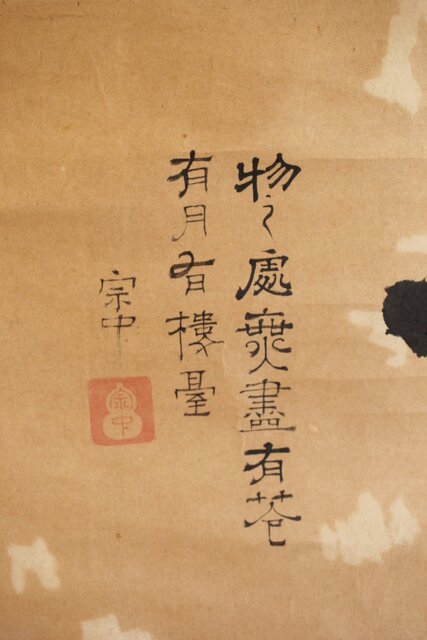 物〻處無盡有花
有月有樓臺
宗中
宗中